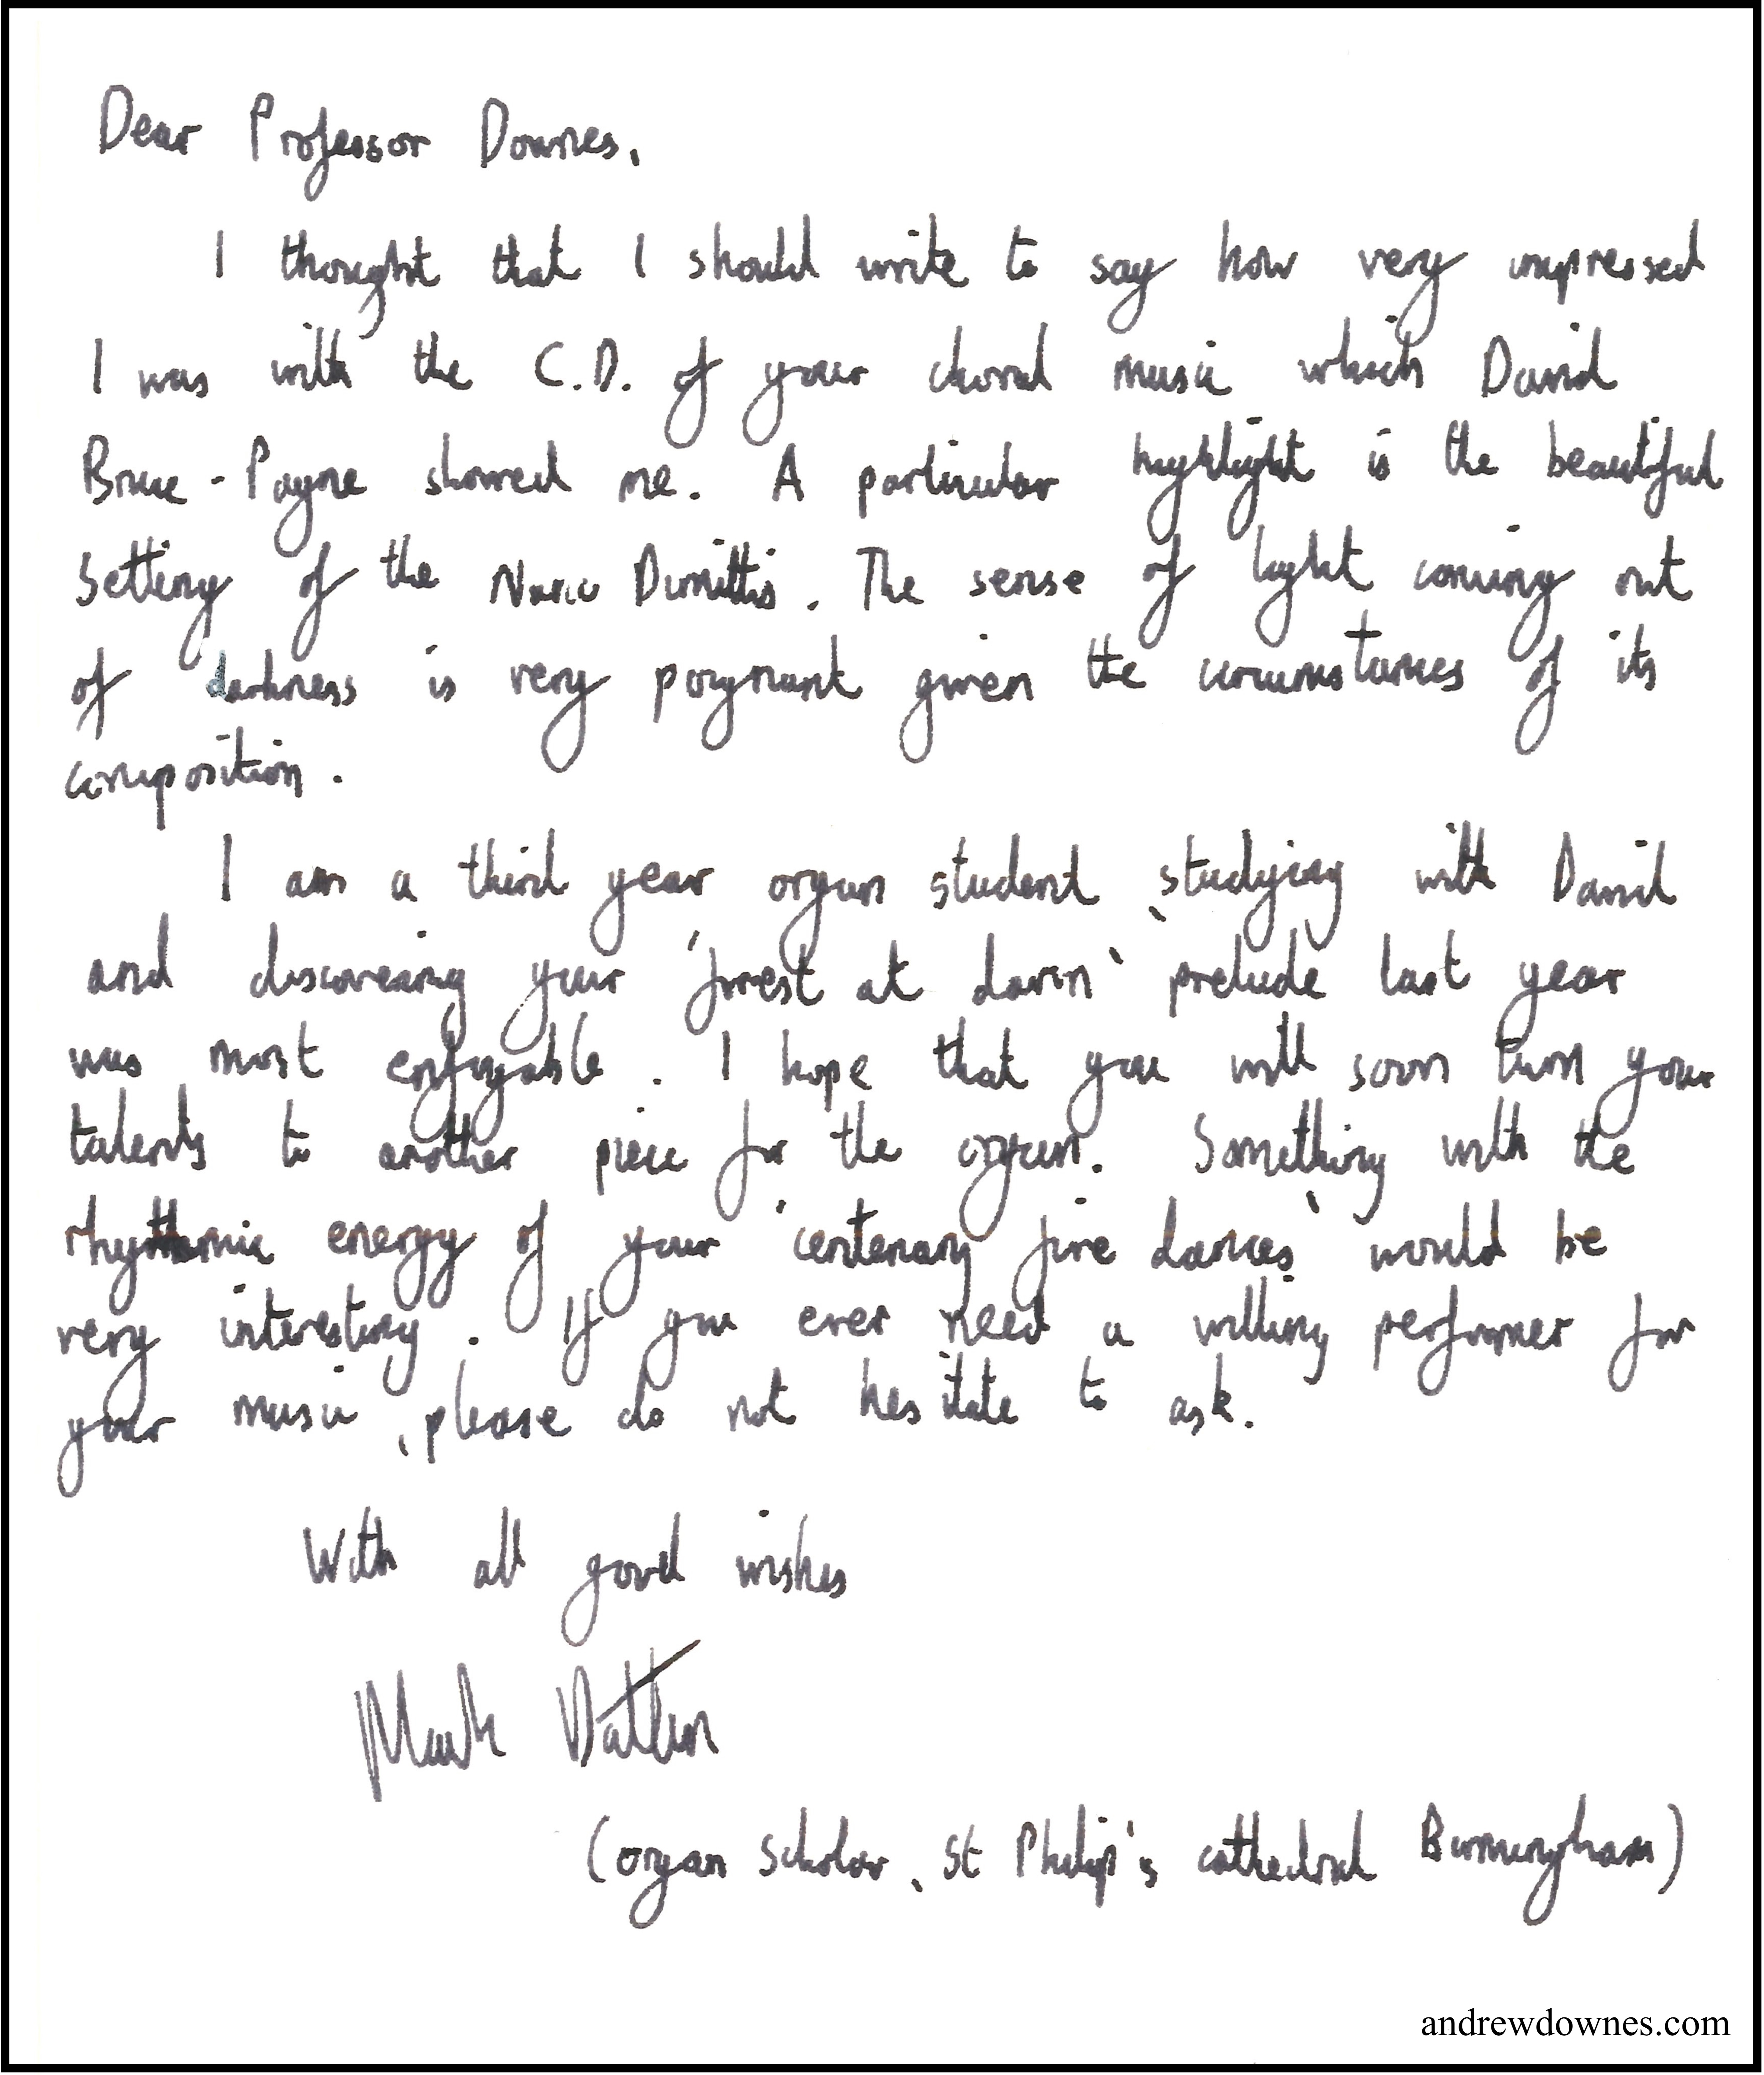 Dear Professor Downes,
I thought that I should write to say how very impressed
I was with the C.D. of your choral music which David
Bruce-Payne showed me. A particular highlight is the beautiful
setting of the Nunc Dimittis. The sense of light coming out
of darkness is very poignant given the circumstances of its
composition.
I am a third year organ student, studying with David
and discovering your 'forest at dawn' prelude last year
was most enjoyable. I hope that you will soon turn your
talents to another piece for the organ. Something with the
rhythmic energy of your 'centenary fire dances' would be
very interesting. If you ever need a willing performer for
your music, please do not hesitate to ask.
With all good wishes
Mark
(organ scholar, St Philip's cathedral Birmingham)
andrewdownes.com